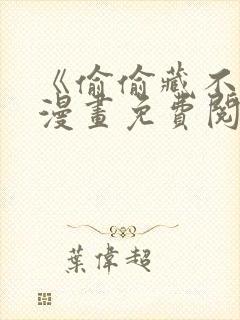 《偷偷藏不
漫畫免費閱
葉偉超